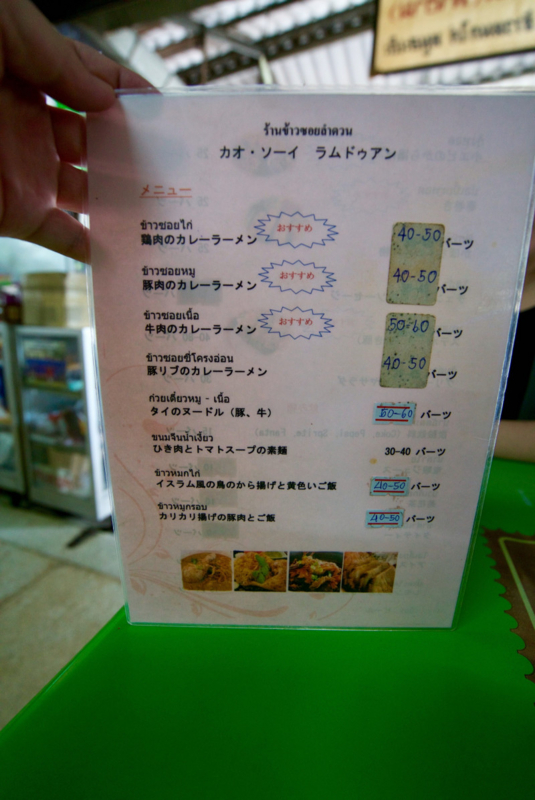 ร้านข้าวซอยลำดวน
カオ・ソーイ ラムドゥアン
メニュー
ข้าวซอยไก่
鶏肉のカレーラーメン おすすめ 40-50 バーツ
ข้าวซอยหมู
豚肉のカレーラーメン おすすめ 40-50 バーツ
ข้าวซอยเนื้อ
牛肉のカレーラーメン おすすめ 50-60 バーツ
ข้าวซอยซี่โครงอ่อน
豚リブのカレーラーメン 40-50 バーツ
ก๋วยเตี๋ยวหมู - เนื้อ
タイのヌードル（豚、牛） 50-60 バーツ
ขนมจีนน้ำเงี้ยว
ひき肉とトマトスープの素麺 30-40 バーツ
ข้าวหมกไก่
イスラム風の鳥のから揚げと黄色いご飯 40-50 バーツ
ข้าวหมูกรอบ
カリカリ揚げの豚肉とご飯 40-50 バーツ